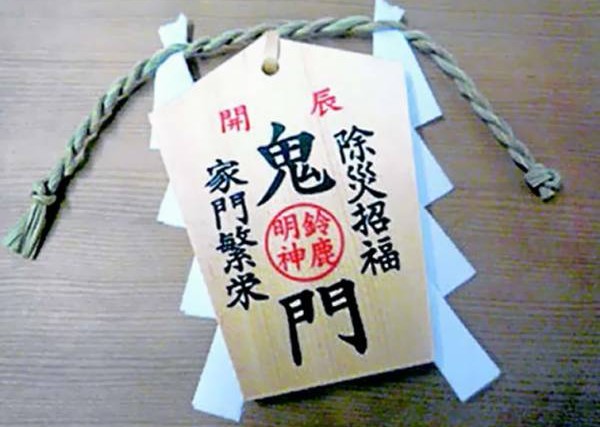 辰開
除災招福
鬼門
鈴鹿
明神
家門繁栄